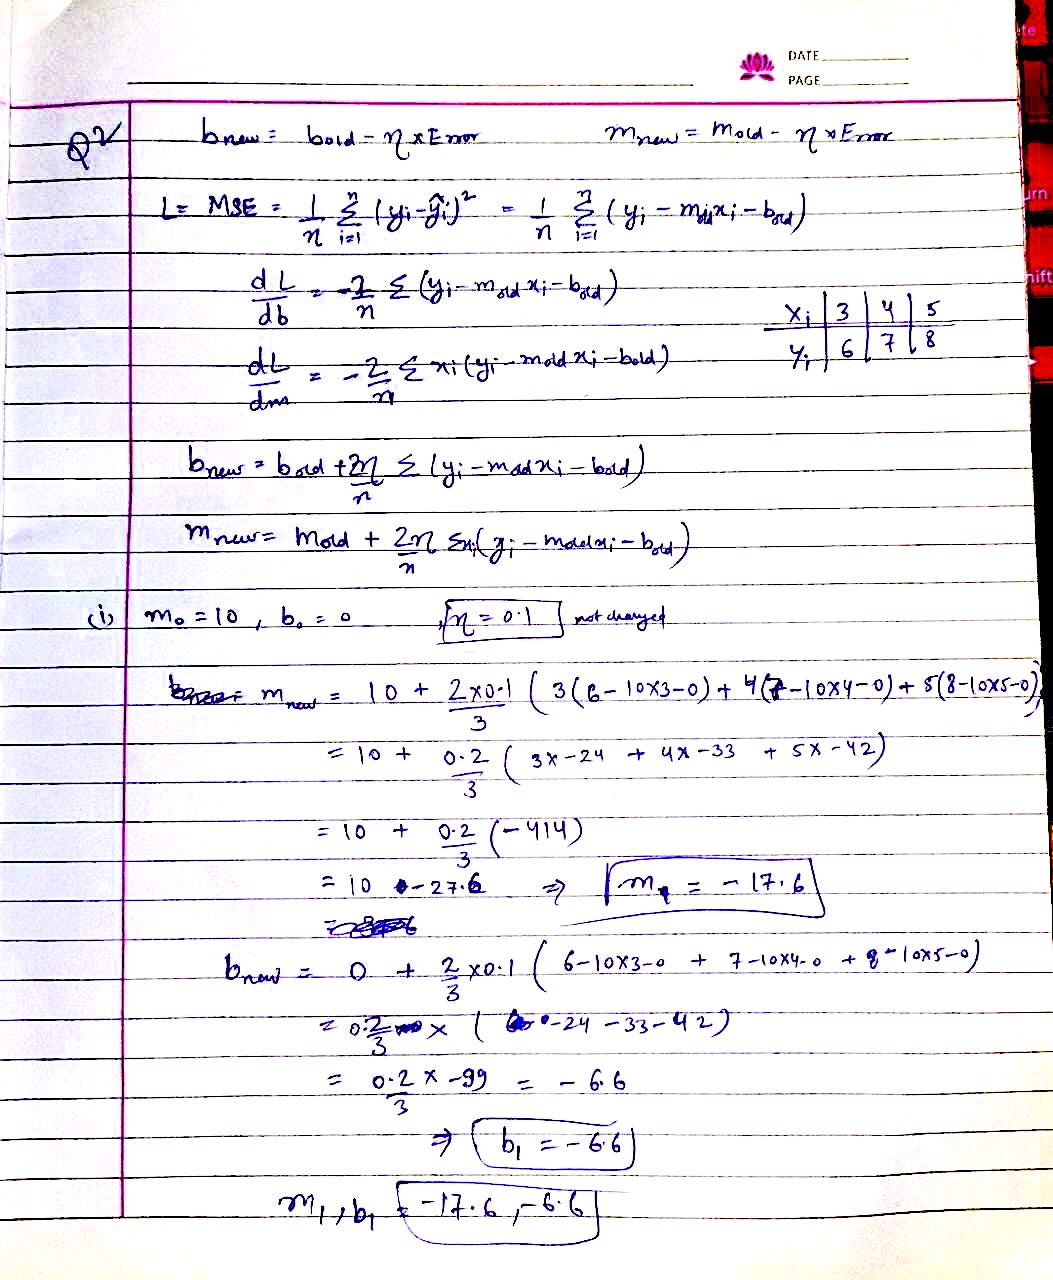 DATE
PAGE
Q2
bnew = bold - η x Error    mnew = mold - η x Error
L = MSE = 1/n Σ_{i=1}^{n} (yi - ŷi)² = 1/n Σ_{i=1}^{n} (yi - mold xi - bold)
dL/db = -2/n Σ (yi - mold xi - bold)
xi | 3 | 4 | 5
yi | 6 | 7 | 8
dL/dm = -2/n Σ xi (yi - mold xi - bold)
bnew = bold + 2η/n Σ (yi - mold xi - bold)
mnew = mold + 2η/n Σxi (yi - mold xi - bold)
(i) m₀ = 10 , b₀ = 0 , η = 0.1 not changed
mnew = 10 + 2x0.1/3 ( 3(6-10x3-0) + 4(7-10x4-0) + 5(8-10x5-0)
= 10 + 0.2/3 ( 3x-24 + 4x-33 + 5x-42)
= 10 + 0.2/3 (-414)
= 10 - 27.6 ⇒ m₁ = -17.6
bnew = 0 + 2/3 x0.1 ( 6-10x3-0 + 7-10x4-0 + 8-10x5-0)
= 0.2/3 x ( -24 -33 -42)
= 0.2/3 x -99 = -6.6
⇒ b₁ = -6.6
m₁, b₁ = -17.6, -6.6